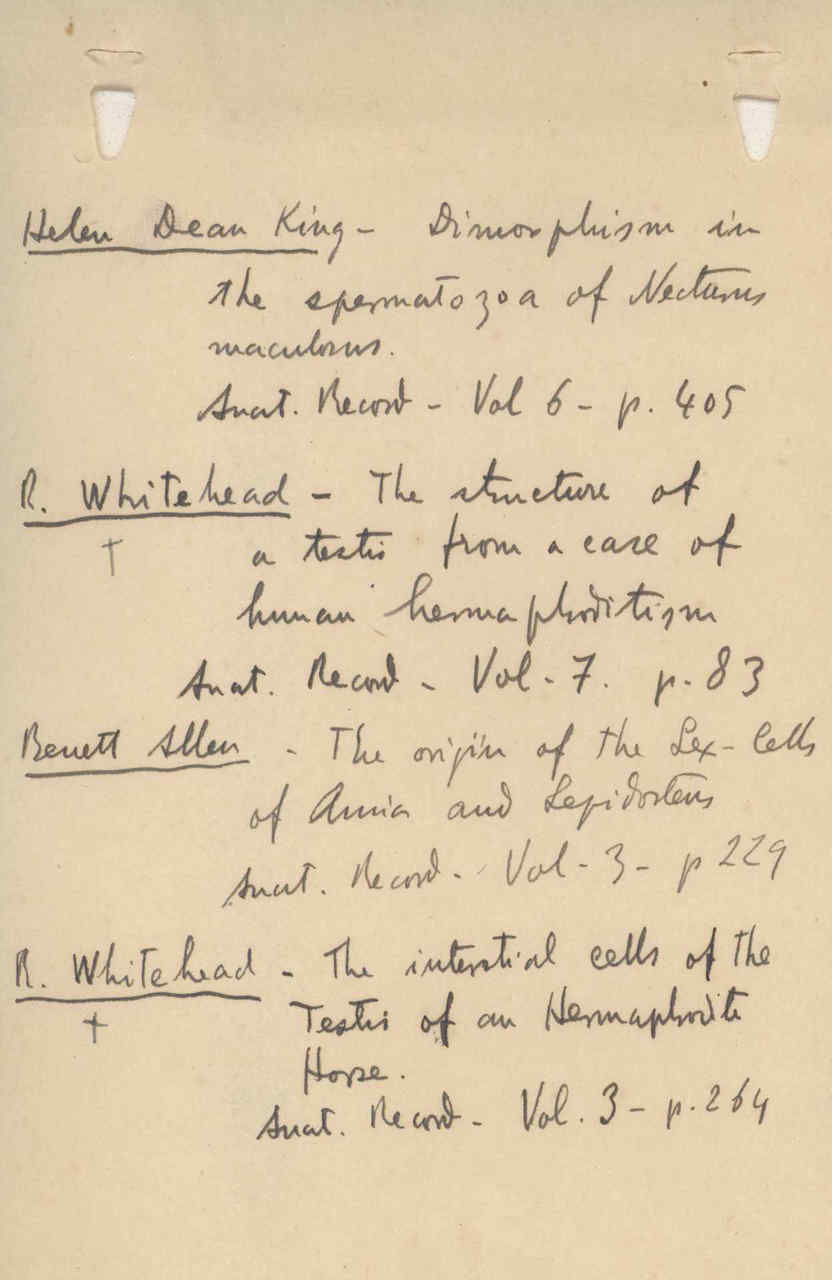 Helen Dean King - Dimorphism in
the spermatozoa of Necturus
maculosus.
Anat. Record - Vol 6 - p. 405
R. Whitehead - The structure of
† a testis from a case of
human hermaphoditism
Anat. Record - Vol - 7. p. 83
Benett Allen - The origin of the Sex-Cells
of Amia and Lepidosteus
Anat. Record. - Vol - 3 - p 229
R. Whitehead - The interstial cells of the
† Testis of an Hermaphrodite
Horse.
Anat. Record - Vol. 3 - p. 264